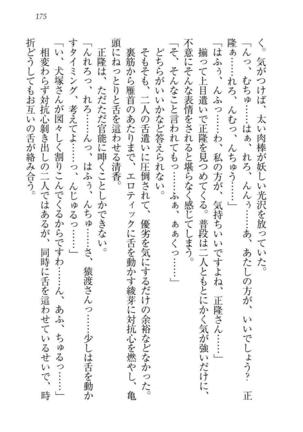 175
く。気がつけば、太い肉棒が妖しい光沢を放っていた。
「んっ、むちゅ……はぁ、れろ、んんぅ……あ、あたしの方が、いいでしょう？　正
隆ぉ……れろ、んむっ、んちゅう……」
「はふぅ、んふっ……わ、私の方が、気持ちいいですよね、正隆さん……」
揃って上目遣いで正隆を見つめてくる。普段は二人とにかく気が強いだけに、
不意にそんな表情をされると堪らなく感じてしまう。
「そ、そんなこと言われても……ふぁ、ぁぁくっ……」
どちらがいいかなど答えられない。
そもそも、二人の舌遣いに圧倒されて、優劣を気にするだけの余裕などなかった。
裏筋から雁首のあたりまで、エロティックに舌を動かす綾芽に対抗心を燃やし、亀
頭にねっとりと舌を這わせる清香。
正隆は、ただただ官能に呻くことしかできない。
「んれろっ、れろ……んっ、はふぅ、んちゅ……さ、猿渡さんっ……少しは舌を動か
すタイミング、考えてよ……っ、んじゅるっ……」
「い、犬塚さんが図々しく割りこんでくるからですわ……ん、あふ、ちゅるっ……」
相変わらず対抗心剥き出しの二人ではあるが、同時に舌を這わせているせいで、時
折どうしてもお互いの舌が絡み合う。